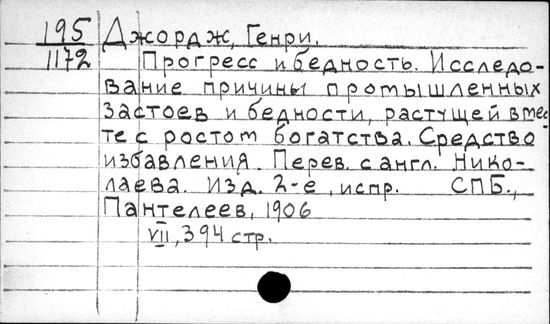 195 Джордж, Генри.
1172 Прогресс и бедность. Исследо-
вание причины промышленных
застоев и бедности, растущей вмес
те с ростом богатства. Средство
избавления. Перев. с англ. Нико-
лаева. Изд. 2-е, испр. СПБ.,
Пантелеев, 1906
VII, 394 стр.